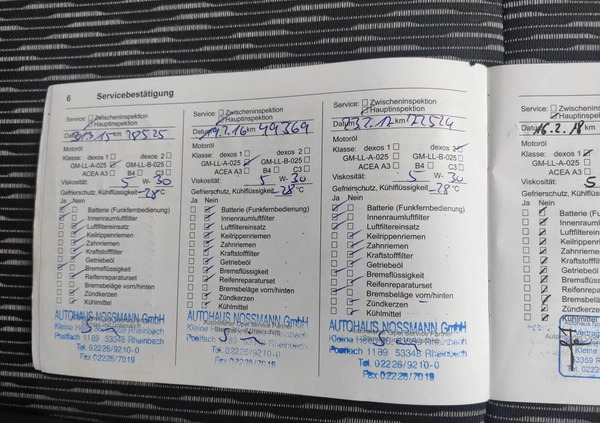 6 Servicebestätigung
Service: Zwischeninspektion
Hauptinspektion
Datum km 28525
Motoröl
Klasse: dexos 1 dexos 2
GM-LL-A-025 GM-LL-B-025
ACEA A3 B4 C3
Viskosität: 5 W- 30
Gefrierschutz, Kühlflüssigkeit -28 °C
Ja Nein
Batterie (Funkfernbedienung)
Innenraumluftfilter
Luftfiltereinsatz
Keilrippenriemen
Zahnriemen
Kraftstofffilter
Getriebeöl
Bremsflüssigkeit
Reifenreparaturset
Bremsbeläge vorn/hinten
Zündkerzen
Kühlmittel
AUTOHAUS NOSSMANN GmbH
Postfach 1189 53348 Rheinbach
Tel. 02226/9210-0
Fax 02226/7019
Service: Zwischeninspektion
Hauptinspektion
Datum 19.2.16 km 49369
Motoröl
Klasse: dexos 1 dexos 2
GM-LL-A-025 GM-LL-B-025
ACEA A3 B4 C3
Viskosität: 5 W- 30
Gefrierschutz, Kühlflüssigkeit -28 °C
Ja Nein
Batterie (Funkfernbedienung)
Innenraumluftfilter
Luftfiltereinsatz
Keilrippenriemen
Zahnriemen
Kraftstofffilter
Getriebeöl
Bremsflüssigkeit
Reifenreparaturset
Bremsbeläge vorn/hinten
Zündkerzen
Kühlmittel
AUTOHAUS NOSSMANN GmbH
Postfach 1189 53348 Rheinbach
Tel. 02226/9210-0
Fax 02226/7019
Service: Zwischeninspektion
Hauptinspektion
Datum km 72524
Motoröl
Klasse: dexos 1 dexos 2
GM-LL-A-025 GM-LL-B-025
ACEA A3 B4 C3
Viskosität: 5 W- 30
Gefrierschutz, Kühlflüssigkeit -28 °C
Ja Nein
Batterie (Funkfernbedienung)
Innenraumluftfilter
Luftfiltereinsatz
Keilrippenriemen
Zahnriemen
Kraftstofffilter
Getriebeöl
Bremsflüssigkeit
Reifenreparaturset
Bremsbeläge vorn/hinten
Zündkerzen
Kühlmittel
AUTOHAUS NOSSMANN GmbH
Postfach 1189 53348 Rheinbach
Tel. 02226/9210-0
Fax 02226/7019
Service: Zwischen
Hauptinsp
Datum 16.2.18 km
Motoröl
Klasse: dexos 1
GM-LL-A-025
ACEA A3
Viskosität: 5
Gefrierschutz, Kühlflüssig
Ja Nein
Batterie (Funk
Innenraumluft
Luftfiltereinsa
Keilrippenrie
Zahnriemen
Kraftstofffilter
Getriebeöl
Bremsflüssig
Reifenrepara
Bremsbeläge
Zündkerzen
Kühlmittel